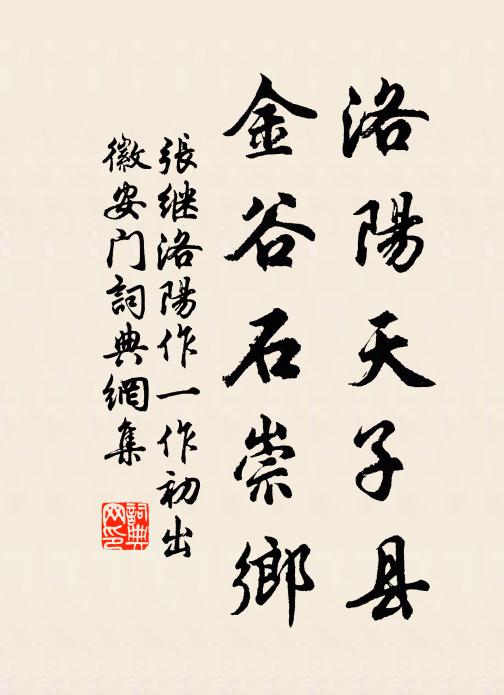 洛陽天子县
金谷石崇鄉
張继洛陽作一作初出
徽安门詞典網集
詞典
网印